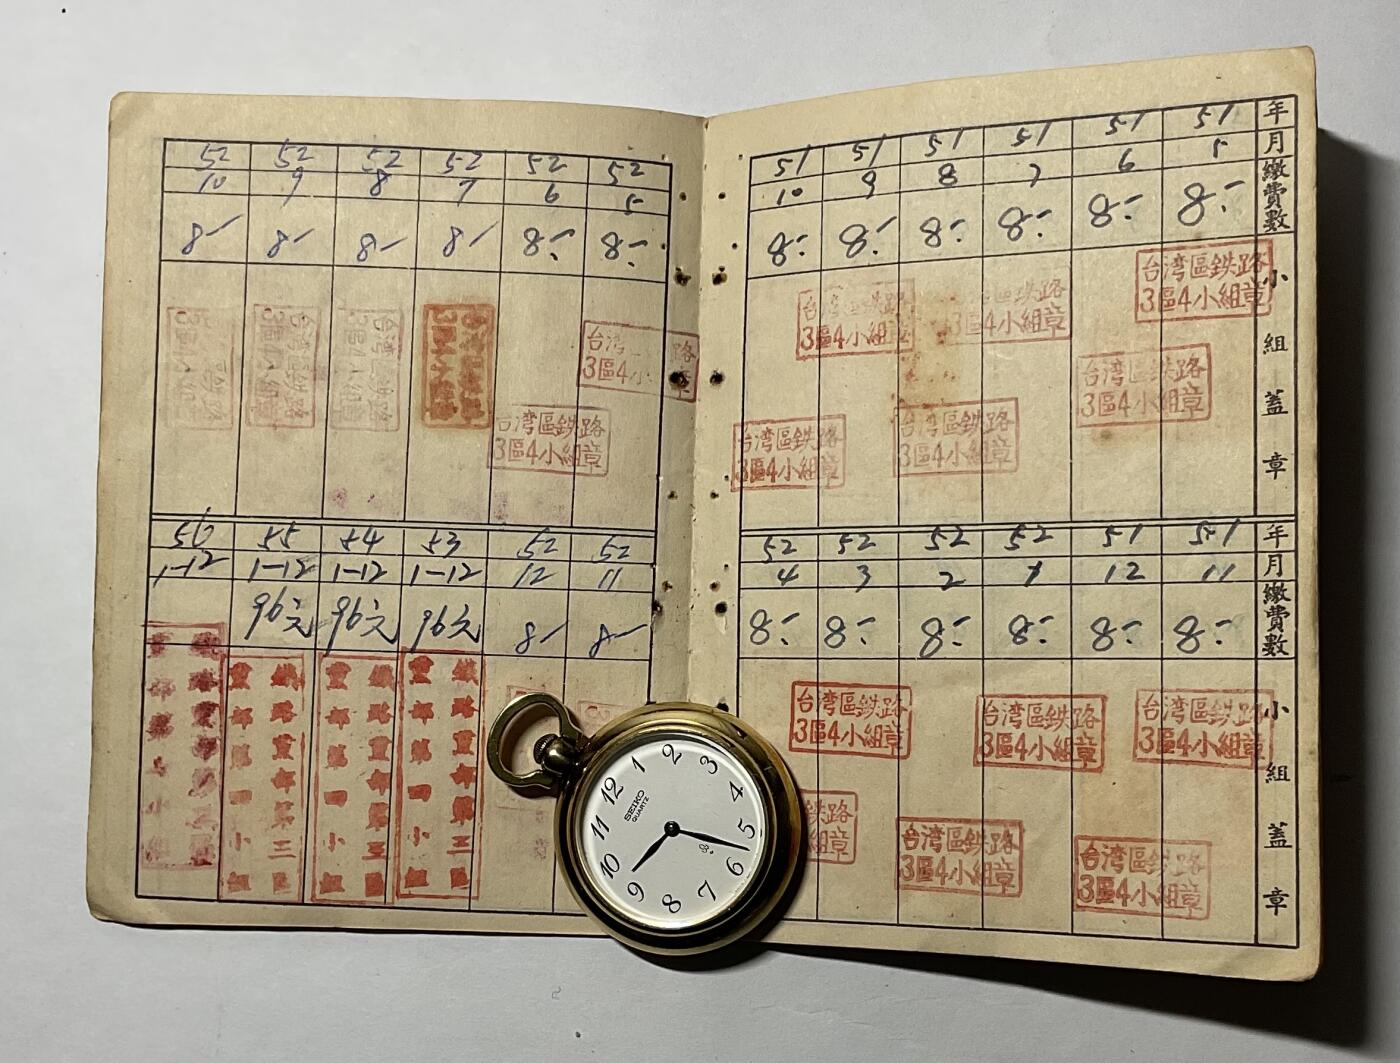 年 51 51 51 51 51 51
月 5 6 7 8 9 10
繳費數 8.- 8.- 8.- 8.- 8.- 8.-
小組蓋章
台湾區鉄路
3區4小組章
台湾區鉄路
3區4小組章
區鉄路
3區4小組章
台湾區鉄路
3區4小組章
台湾區鉄路
3區4小組章
台湾區鉄路
3區4小組章
年 51 51 52 52 52 52
月 11 12 1 2 3 4
繳費數 8.- 8.- 8.- 8.- 8.- 8.-
小組蓋章
台湾區鉄路
3區4小組章
台湾區鉄路
3區4小組章
台湾區鉄路
3區4小組章
台湾區鉄路
3區4小組章
台湾區鉄路
3區4小組章
鉄路
組章
52 52 52 52 52 52
5 6 7 8 9 10
8.- 8.- 8- 8- 8- 8-
台湾 路
3區4小 章
台湾區鉄路
3區4小組章
52 52 53 54 55 56
11 12 1-12 1-12 1-12 1-12
8- 8- 96元 96元 96元
鐵路黨部第三區
黨部第四小組
鐵路黨部第三區
黨部第四小組
鐵路黨部第三區
黨部第一小組
SEIKO
QUARTZ
12 1 2 3 4 5 6 7 8 9 10 11